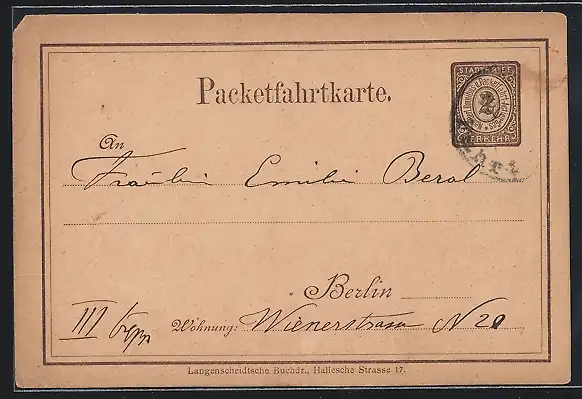 Packetfahrtkarte.
STADTBRIEF
2
VERKEHR
An
Fräulein Emilie Beral
Berlin
III Wohnung: Wienerstrasse N 20
Langenscheidtsche Buchdr., Hallesche Strasse 17.